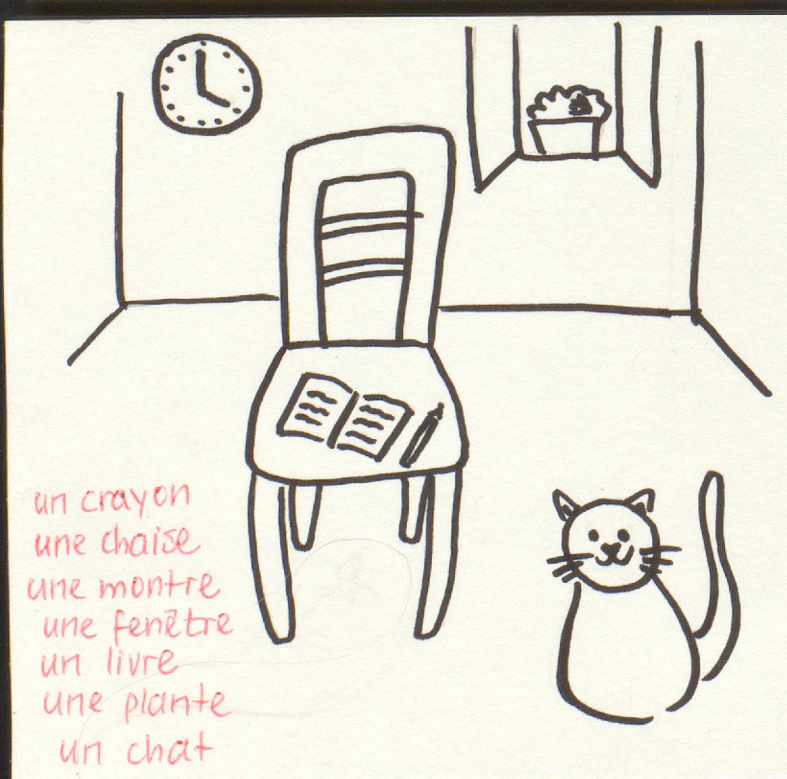 un crayon
une chaise
une montre
une fenêtre
un livre
une plante
un chat